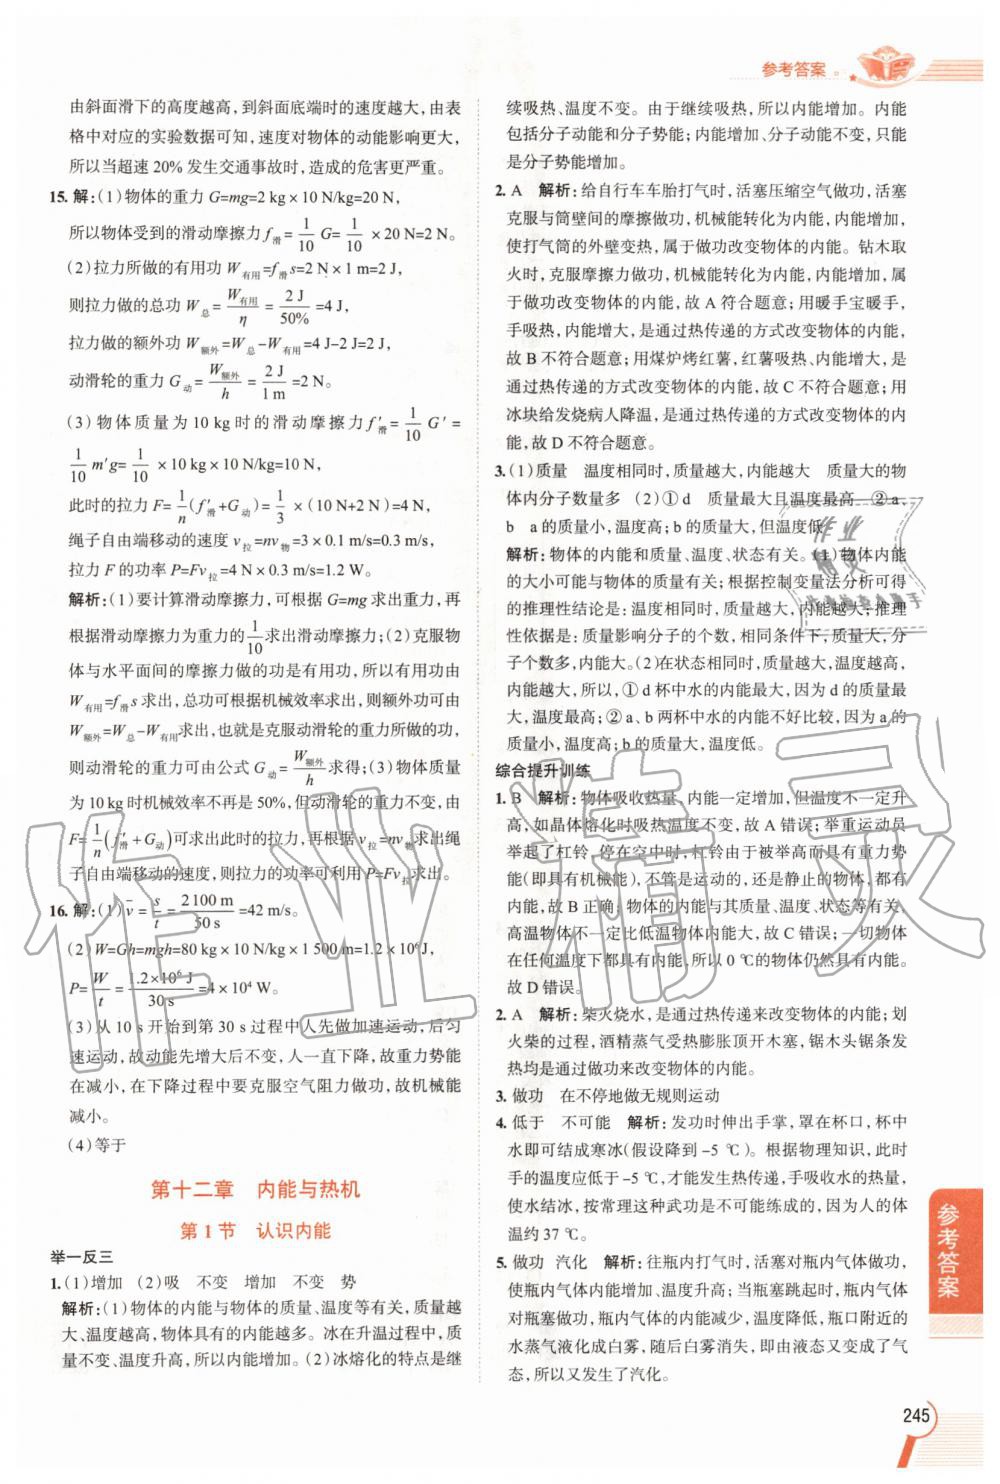 参考答案
由斜面滑下的高度越高,到斜面底端时的速度越大,由表
格中对应的实验数据可知,速度对物体的动能影响更大,
所以当超速 20% 发生交通事故时,造成的危害更严重。
15. 解:(1)物体的重力 G=mg=2 kg×10 N/kg=20 N,
所以物体受到的滑动摩擦力 f滑=1/10 G=1/10×20 N=2 N。
(2)拉力所做的有用功 W有用=f滑s=2 N×1 m=2 J,
则拉力做的总功 W总=W有用/η=2 J/50%=4 J,
拉力做的额外功 W额外=W总-W有用=4 J-2 J=2 J,
动滑轮的重力 G动=W额外/h=2 J/1 m=2 N。
(3)物体质量为 10 kg 时的滑动摩擦力 f′滑=1/10 G′=
1/10 m′g=1/10×10 kg×10 N/kg=10 N,
此时的拉力 F=1/n(f′滑+G动)=1/3×(10 N+2 N)=4 N,
绳子自由端移动的速度 v拉=nv物=3×0.1 m/s=0.3 m/s,
拉力 F 的功率 P=Fv拉=4 N×0.3 m/s=1.2 W。
解析:(1)要计算滑动摩擦力,可根据 G=mg 求出重力,再
根据滑动摩擦力为重力的1/10求出滑动摩擦力;(2)克服物
体与水平面间的摩擦力做的功是有用功,所以有用功由
W有用=f滑s 求出,总功可根据机械效率求出,则额外功可由
W额外=W总-W有用求出,也就是克服动滑轮的重力所做的功,
则动滑轮的重力可由公式 G动=W额外/h求得;(3)物体质量
为 10 kg 时机械效率不再是 50%,但动滑轮的重力不变,由
F=1/n(f′滑+G动)可求出此时的拉力,再根据 v拉=nv物求出绳
子自由端移动的速度,则拉力的功率可利用 P=Fv拉求出。
16. 解:(1)v̄=s/t=2 100 m/50 s=42 m/s。
(2)W=Gh=mgh=80 kg×10 N/kg×1 500 m=1.2×10⁶ J,
P=W/t=1.2×10⁶ J/30 s=4×10⁴ W。
(3)从 10 s 开始到第 30 s 过程中人先做加速运动,后匀
速运动,故动能先增大后不变,人下降过程中高度一直
在减小,在下降过程中要克服空气阻力做功,故机械能
减小。
(4)等于
第十二章 内能与热机
第 1 节 认识内能
举一反三
1. (1)增加 (2)吸 不变 增加 不变 势
解析:(1)物体的内能与物体的质量、温度等有关,质量越
大、温度越高,物体具有的内能越多。冰在升温过程中,质
量不变、温度升高,所以内能增加。(2)冰熔化的特点是继
续吸热、温度不变。由于继续吸热,所以内能增加。内能
包括分子动能和分子势能;内能增加、分子动能不变,只能
是分子势能增加。
2. A 解析:给自行车车胎打气时,活塞压缩空气做功,活塞
克服与筒壁间的摩擦做功,机械能转化为内能,内能增加,
使打气筒的外壁变热,属于做功改变物体的内能。钻木取
火时,克服摩擦力做功,机械能转化为内能,内能增加,属
于做功改变物体的内能,故 A 符合题意;用暖手宝暖手,
手吸热,内能增大,是通过热传递的方式改变物体的内能,
故 B 不符合题意;用煤炉烤红薯,红薯吸热,内能增大,是
通过热传递的方式改变物体的内能,故 C 不符合题意;用
冰块给发烧病人降温,是通过热传递的方式改变物体的内
能,故 D 不符合题意。
3. (1)质量 温度相同时,质量越大,内能越大 质量大的物
体内分子数量多 (2)①d 质量最大且温度最高 ②a、
b a 的质量小,温度高;b 的质量大,但温度低
解析:物体的内能和质量、温度、状态有关。(1)物体内能
的大小可能与物体的质量有关;根据控制变量法分析可得
的推理性结论是:温度相同时,质量越大,内能越大;推理
依据是:质量影响分子的个数,相同条件下,质量大,分
子个数多,内能大。(2)在状态相同时,质量越大,温度越高,
内能越大,所以,①d 杯中水的内能最大,因为 d 的质量最
大,温度最高;②a、b 两杯中水的内能不好比较,因为 a 的
质量小,温度高;b 的质量大、温度低。
综合提升训练
1. B 解析:物体吸收热量,内能一定增加,但温度不一定升
高,如晶体熔化时吸热温度不变,故 A 错误;举重运动员
举起了杠铃,停在空中时,杠铃由于被举高而具有重力势
能(即具有机械能),不管是运动的,还是静止的物体,都有
内能,故 B 正确;物体的内能与其质量、温度、状态等有关,
高温物体不一定比低温物体内能大,故 C 错误;一切物体
在任何温度下都具有内能,所以 0 ℃的物体仍然具有内能,
故 D 错误。
2. A 解析:柴火烧水,是通过热传递来改变物体的内能;划
火柴的过程,酒精蒸气受热膨胀顶开木塞,锯木头锯条发
热均是通过做功来改变物体的内能。
3. 做功 在不停地做无规则运动
4. 低于 不可能 解析:发功时伸出手掌,罩在杯口,杯中
水即可结成寒冰(假设降到-5 ℃)。根据物理知识,此时
手的温度应低于-5 ℃,才能发生热传递,手吸收水的热量,
使水结冰,按常理这种武功是不可能存在的,因为人的体
温约 37 ℃。
5. 做功 汽化 解析:往瓶内打气时,活塞对瓶内气体做功,
使瓶内气体内能增加,温度升高;当瓶塞跳起时,瓶内气体
对瓶塞做功,瓶内气体的内能减少,温度降低,瓶口附近的
水蒸气液化成白雾,随后白雾消失,即由液态又变成了气
态,所以又发生了汽化。
参考答案
245
作业精灵
作业
精灵